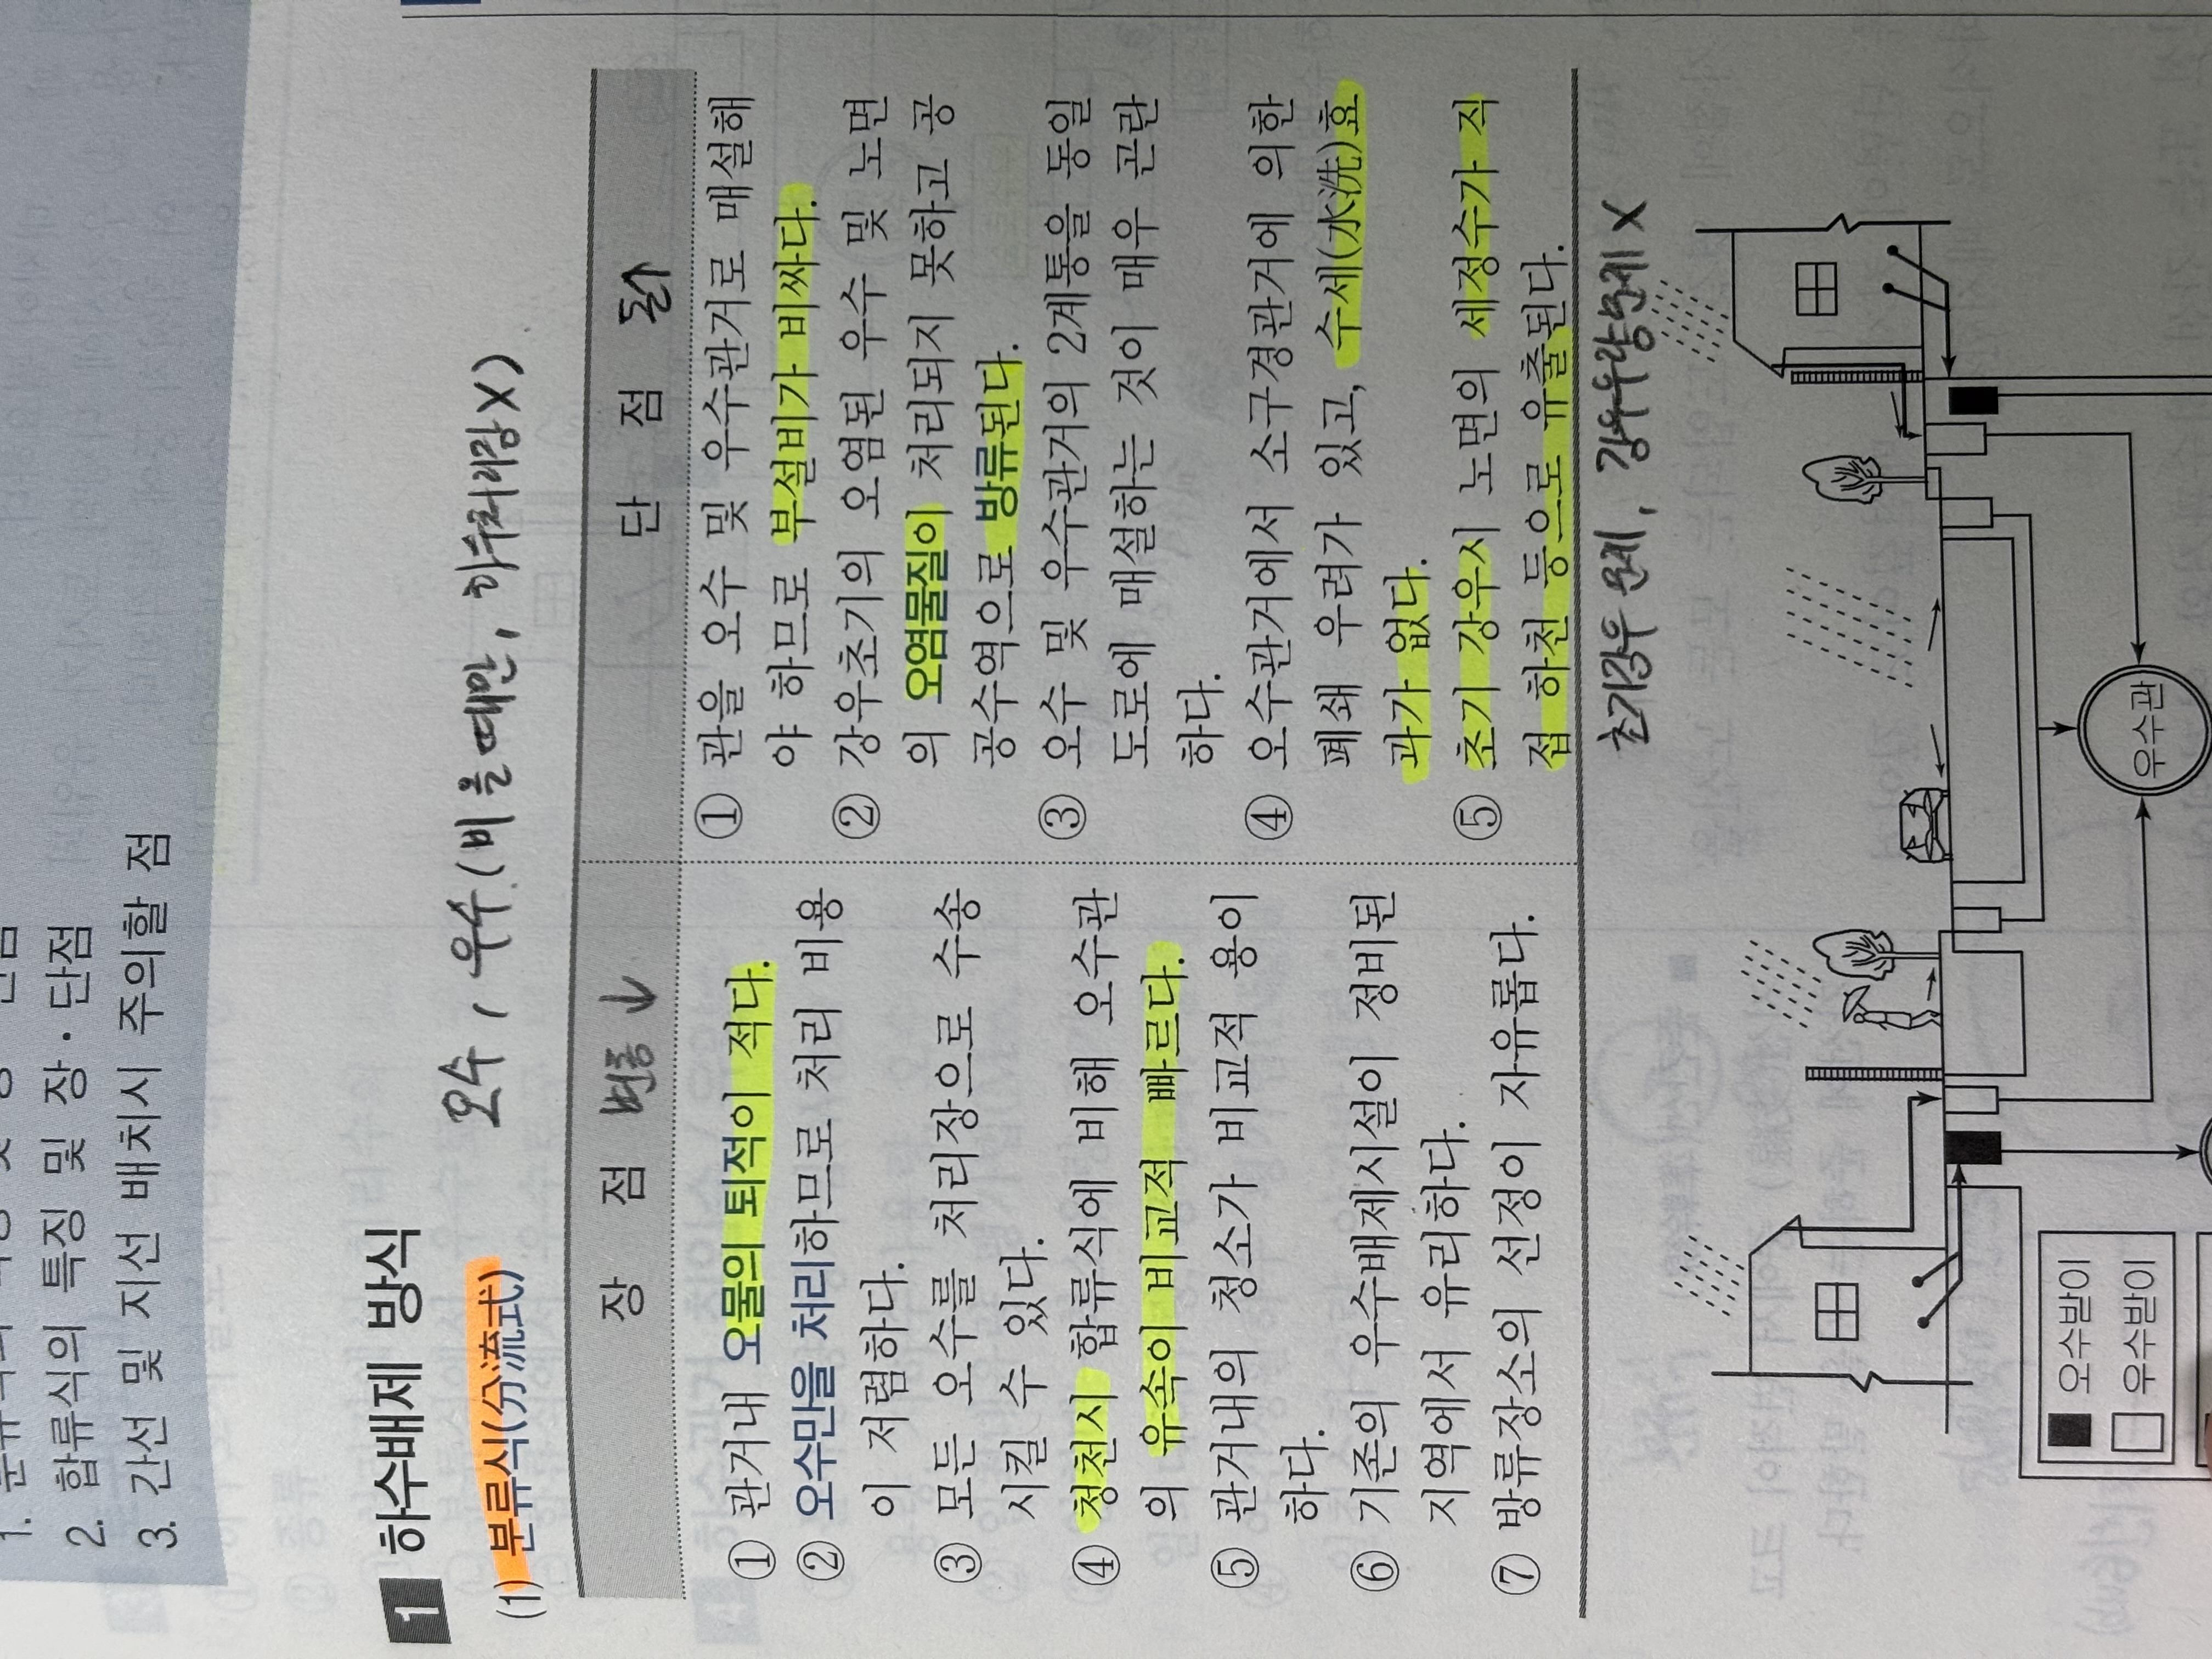 2. 합류식의 특징 및 장·단점
3. 간선 및 지선 배치시 주의할 점
1 하수배제 방식
(1) 분류식(分流式)
오수, 우수(비올때만, 하수처리장X)
장 점 변동↓
① 관거내 오물의 퇴적이 적다.
② 오수만을 처리하므로 처리 비용
이 저렴하다.
③ 모든 오수를 처리장으로 수송
시킬 수 있다.
④ 청천시 합류식에 비해 오수관
의 유속이 비교적 빠르다.
⑤ 관거내의 청소가 비교적 용이
하다.
⑥ 기존의 우수배제시설이 정비된
지역에서 유리하다.
⑦ 방류장소의 선정이 자유롭다.
단 점 돈↑
① 관을 오수 및 우수관거로 매설해
야 하므로 부설비가 비싸다.
② 강우초기의 오염된 우수 및 노면
의 오염물질이 처리되지 못하고 공
공수역으로 방류된다.
③ 오수 및 우수관거의 2계통을 동일
도로에 매설하는 것이 매우 곤란
하다.
④ 오수관거에서 소구경관거에 의한
폐쇄 우려가 있고, 수세(水洗)효
과가 없다.
⑤ 초기 강우시 노면의 세정수가 직
접 하천 등으로 유출된다.
초기강우 문제, 강우량문제 X
우수관
오수받이
우수받이